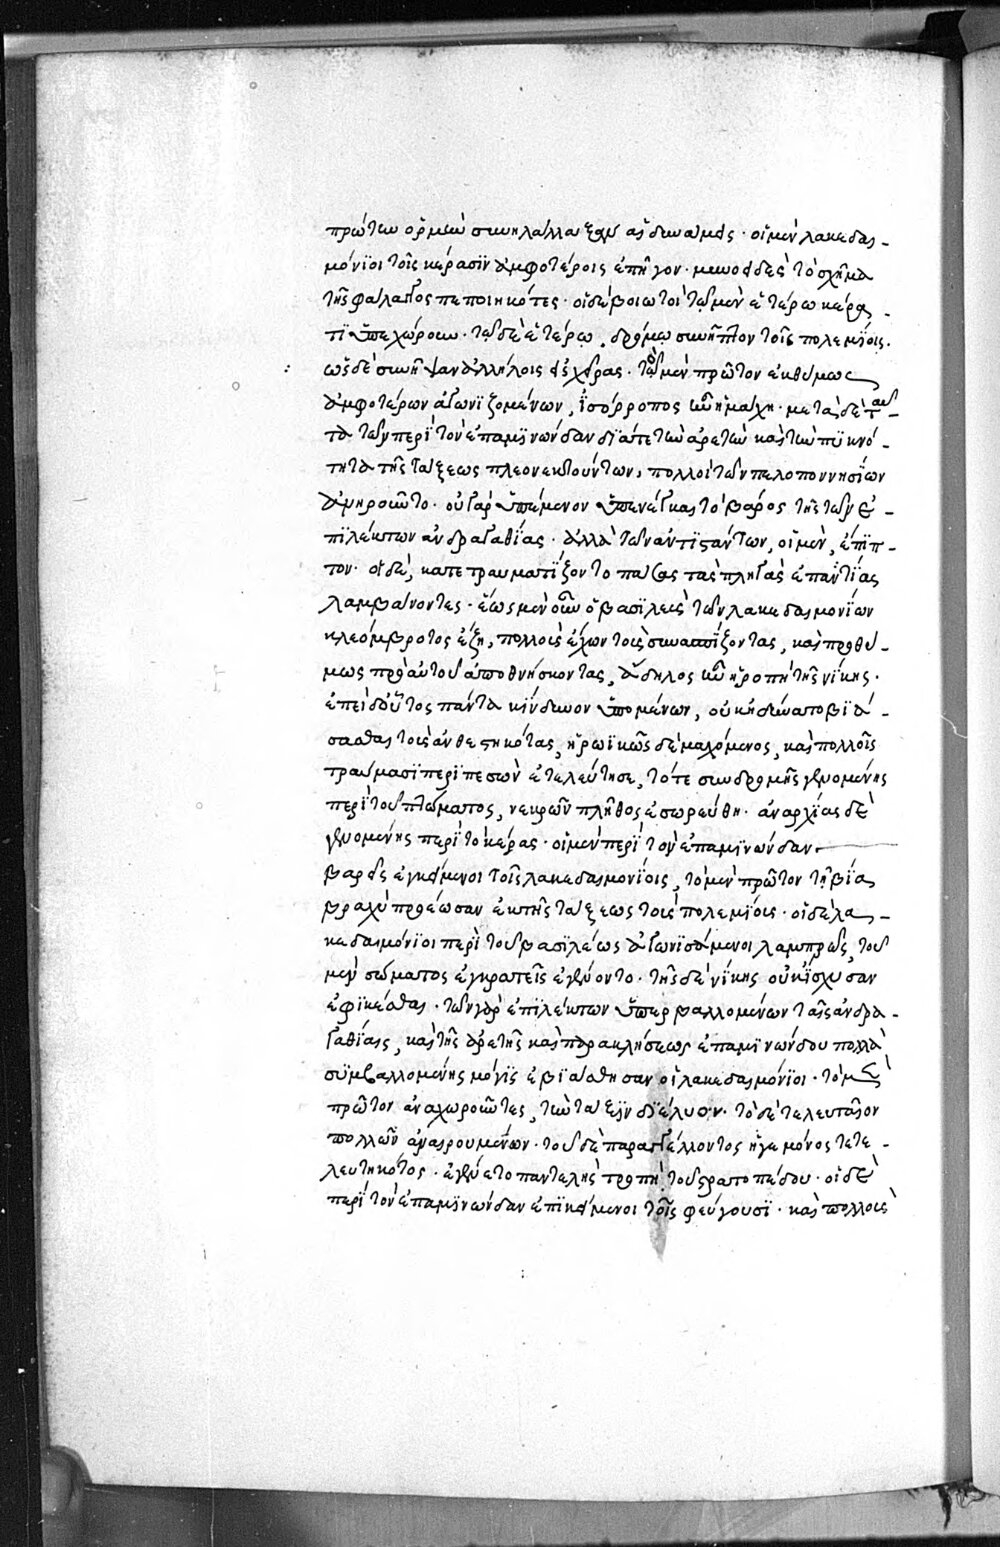 πρώτην ὁρμὴν συνήλλαξαν αἱ δυνάμεις · οἱ μὲν λακεδαι-
μόνϊοι τοῖς κέρασϊν ἀμφοτέροις ἐπῆγον · μηνοειδὲς τὸ σχῆμα
τῆς φάλαγγος πεποιηκότες · οἱ δὲ βοιωτοὶ τῷ μὲν ἑτέρω κέρα-
τϊ ὑπεχώρουν · τῷ δὲ ἑτέρῳ, δρόμῳ συνῆπτον τοῖς πολεμίοις.
ὡς δὲ συνῆψαν ἀλλήλοις εἰς χεῖρας · τὸ μὲν πρῶτον ἐκθύμως
ἀμφοτέρων ἀγωνιζομένων, ἰσόρροπος ἦν ἡ μάχη · μετὰ δὲ ταῦ-
τα τῶν περὶ τὸν ἐπαμϊνώνδαν δϊά τε τὴν ἀρετὴν καὶ τὴν πυκνό-
τητα τῆς τάξεως πλεονεκτούντων, πολλοὶ τῶν πελοποννησίων
ἀνηροῦντο · οὐ γὰρ ὑπέμενον ὑπενέγκαι τὸ βάρος τῆς τῶν ἐ-
πϊλέκτων ἀνδραγαθίας · ἀλλὰ τῶν ἀντϊστάντων, οἱ μὲν, ἔπϊπ-
τον · οἱ δὲ, κατετραυματίζοντο πάσας τὰς πληγὰς ἐναντίας
λαμβάνοντες · ἕως μὲν οὖν ὁ βασϊλεὺς τῶν λακεδαιμονίων
κλεόμβροτος ἔζη, πολλοὺς ἔχων τοὺς συνασπίζοντας, καὶ προθύ-
μως πρὸ αὐτοῦ ἀποθνήσκοντας, ἄδηλος ἦν ἡ ῥοπὴ τῆς νίκης.
ἐπεὶ δ οὗτος πάντα κίνδυνον ὑπομένων, οὐκ ἠδύνατο βϊά-
σασθαι τοὺς ἀνθεστηκότας, ἡρωϊκῶς δὲ μαχόμενος, καὶ πολλοῖς
τραύμασϊ περϊπεσὼν ἐτελεύτησε, τότε συνδρομῆς γενομένης
περὶ τοῦ πτώματος, νεκρῶν πλῆθος ἐσωρεύθη · ἀναρχίας δὲ
γενομένης περὶ τὸ κέρας · οἱ μὲν περὶ τὸν ἐπαμϊνώνδαν
βαρεῖς ἐγκείμενοι τοῖς λακεδαιμονίοις, τὸ μὲν πρῶτον τῇ βίᾳ
βραχὺ προέωσαν ἐκ τῆς τάξεως τοὺς πολεμίους · οἱ δὲ λα-
κεδαιμόνϊοι περὶ τοῦ βασϊλέως ἀγωνϊσάμενοι λαμπρῶς, τοῦ
μὲν σώματος ἐγκρατεῖς ἐγένοντο · τῆς δὲ νίκης οὐκ ἴσχυσαν
ἐφϊκέσθαι · τῶν γὰρ ἐπϊλέκτων ὑπερβαλλομένων ταῖς ἀνδρα-
γαθίαις, καὶ τῆς ἀρετῆς καὶ παρακλήσεως ἐπαμϊνώνδου πολλὰ
συμβαλλομένης μόγϊς ἐβϊάσθησαν οἱ λακεδαιμόνϊοι · τὸ μὲν
πρῶτον ἀναχωροῦντες, τὴν τάξϊν δϊέλυον · τὸ δὲ τελευταῖον
πολλῶν ἀναιρουμένων · τοῦ δὲ παραγγέλλοντος ἡγεμόνος τετε-
λευτηκότος · ἐγένετο παντελὴς τροπὴ τοῦ στρατοπέδου · οἱ δὲ
περὶ τὸν ἐπαμϊνώνδαν ἐπϊκείμενοι τοῖς φεύγουσϊ · καὶ πολλοὺς